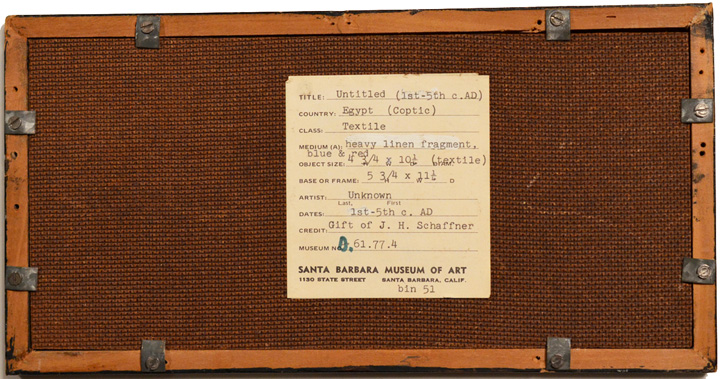 TITLE: Untitled (1st-5th c.AD)
COUNTRY: Egypt (Coptic)
CLASS: Textile
MEDIUM (A): heavy linen fragment,
blue & red
OBJECT SIZE: 4 3/4 x 10½ (textile)
H W D DIAM.
BASE OR FRAME: 5 3/4 x 11½
H W D
ARTIST: Unknown
Last, First
DATES: 1st-5th c. AD
CREDIT: Gift of J. H. Schaffner
MUSEUM No. 0.61.77.4
SANTA BARBARA MUSEUM OF ART
1130 STATE STREET SANTA BARBARA, CALIF.
bin 51